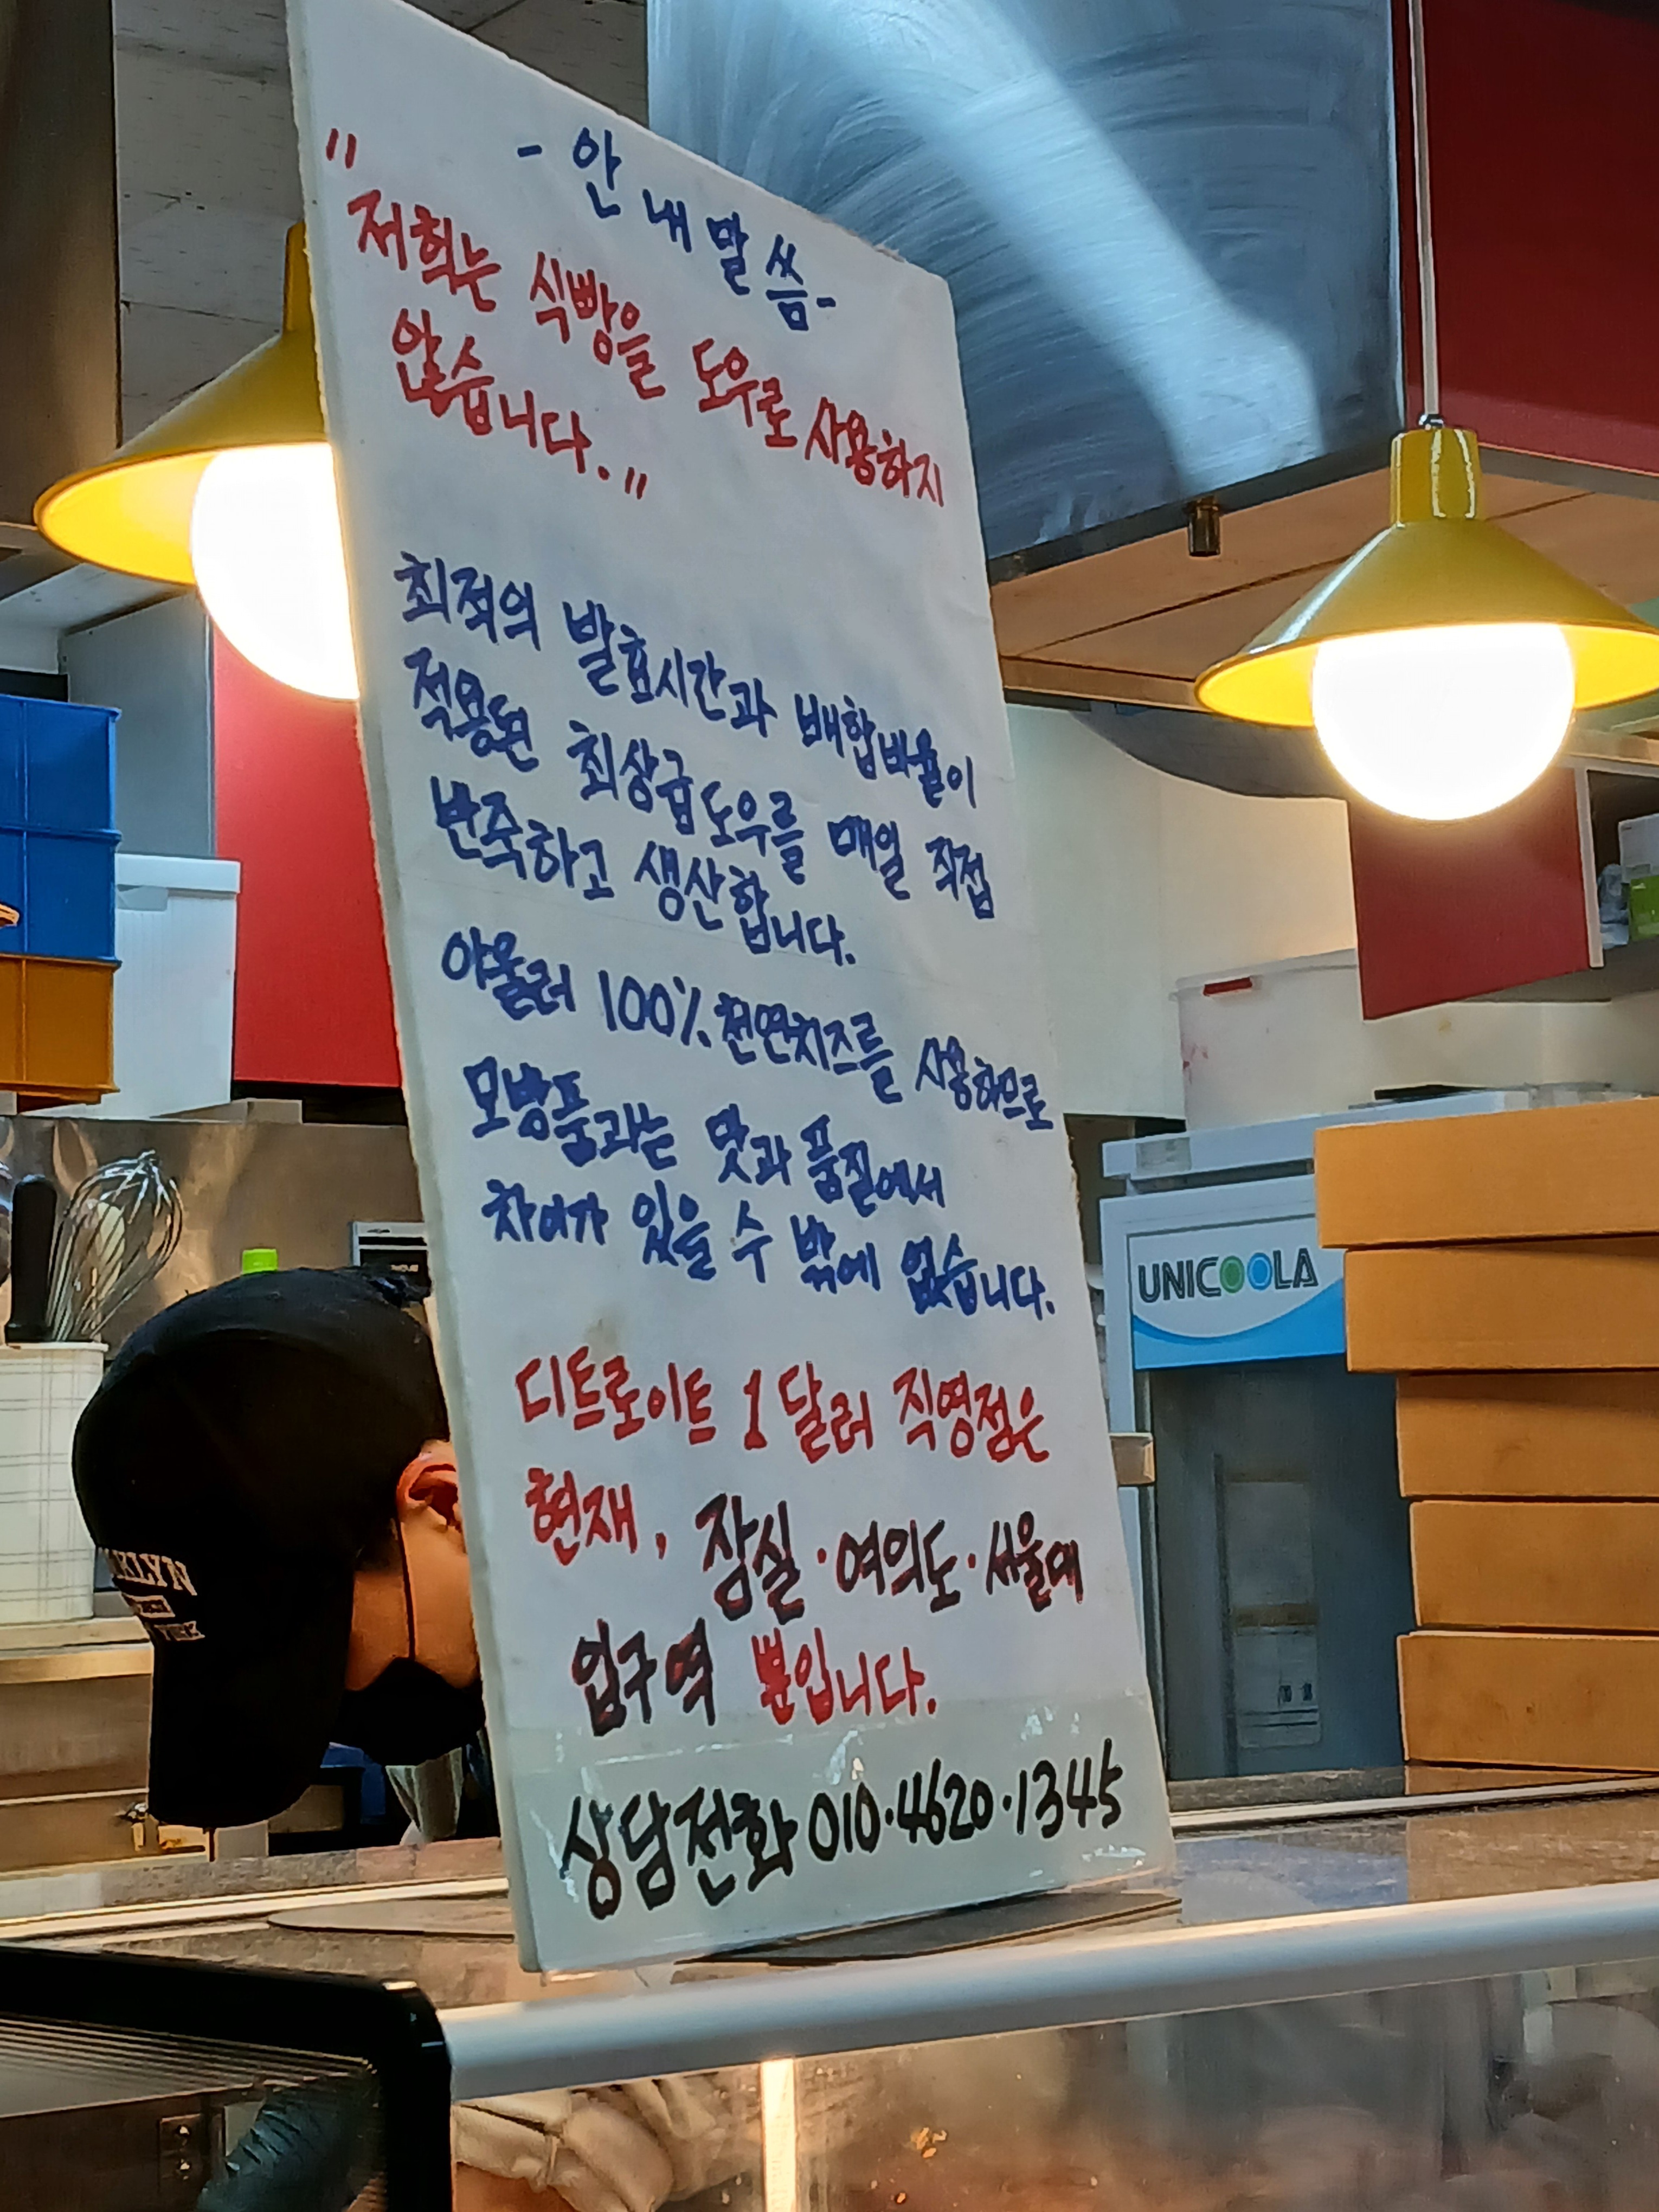 - 안내말씀 -
"저희는 식빵을 도우로 사용하지
않습니다."
최적의 발효시간과 배합비율이
적용된 최상급도우를 매일 직접
반죽하고 생산합니다.
아울러 100% 천연치즈를 사용하므로
모방품과는 맛과 품질에서
차이가 있을 수 밖에 없습니다.
디트로이트 1달러 직영점은
현재, 잠실·여의도·서울대
입구역 뿐입니다.
상담전화 010·4620·1345
UNICOOLA